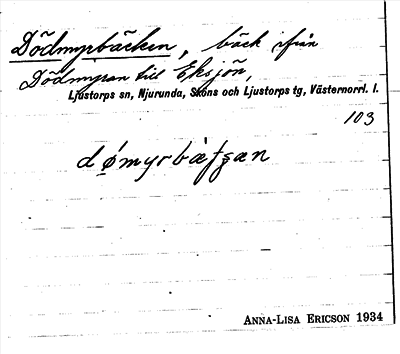 Dödmyrbäcken, bäck ifrån
Dödmyran till Eksjön,
Ljustorps sn, Njurunda, Sköns och Ljustorps tg, Västernorrl. l.
103
dømyrbæʃɕæn
ANNA-LISA ERICSON 1934